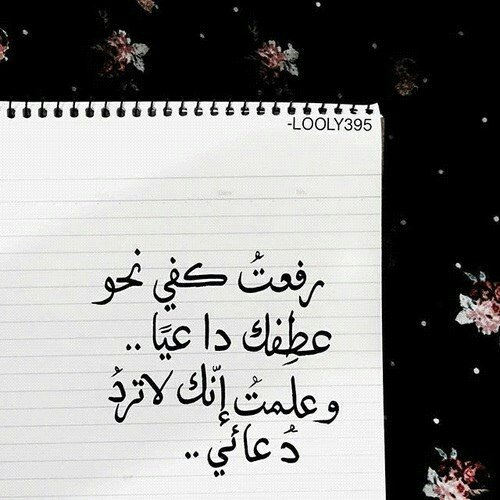 -LOOLY395
رفعتُ كفي نحو
عطِفك داعيًا ..
وعلمتُ إنّك لاتردُ
دُعائي ..